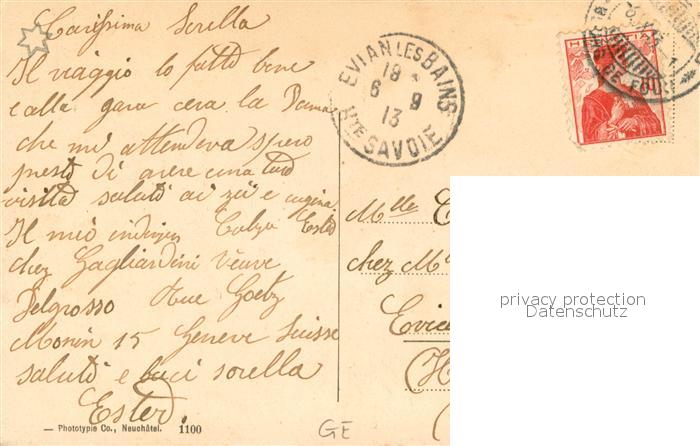 Carissima Sorella
Il viaggio lo fatto bene
e alla gara cera la Dama
che mi attendeva spero
presto di avere una tua
visita saluti ai zii e cugina
Il mio indirizzo Calza Ester
chez Gagliardini Veuve
Delgrosso Rue Goetz
Monin 15 Geneve Suisse
saluti e baci sorella
Ester.
— Phototypie Co., Neuchâtel. 1100
GE
EVIAN LES BAINS
18
6 9
13
Hte SAVOIE
HELVETIA
10
Mlle E
chez M
Evia
(H
(
privacy protection
Datenschutz